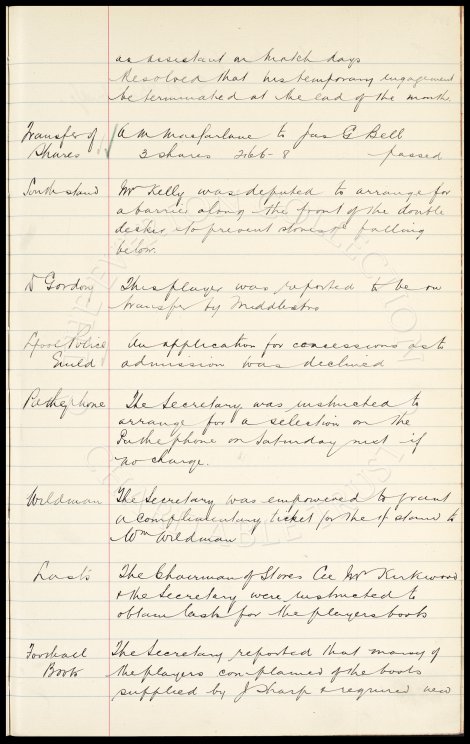 as assistant on Match days
Resolved that his temporary engagement
be terminated at the end of the month.
Transfer of Shares
A M Macfarlane to Jas G Bell
3 shares 266-8 passed
South stand
Mr Kelly was deputed to arrange for
a barrier along the front of the double
decker to prevent stones falling
below.
D Gordon
This player was reported to be on
transfer by Middlesbro
Lpool Police Guild
An application for concessions as to
admission was declined
Pathephone
The Secretary was instructed to
arrange for a selection on the
Pathephone on Saturday next if
no charge.
Wildman
The Secretary was empowered to grant
a complimentary ticket for the stand to
Wm Wildman
Lasts
The Chairman of Stores Cee Mr Kirkwood
& the Secretary were instructed to
obtain lasts for the players boots
Football Boots
The Secretary reported that many of
the players complained of the boots
supplied by J Sharp & required new
EVERTON COLLECTION
CHARITABLE TRUST